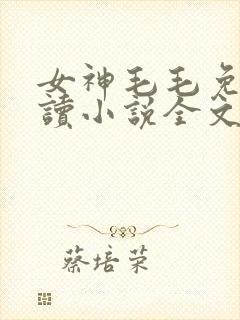 女神毛毛免
讀小說全文
蔡培荣